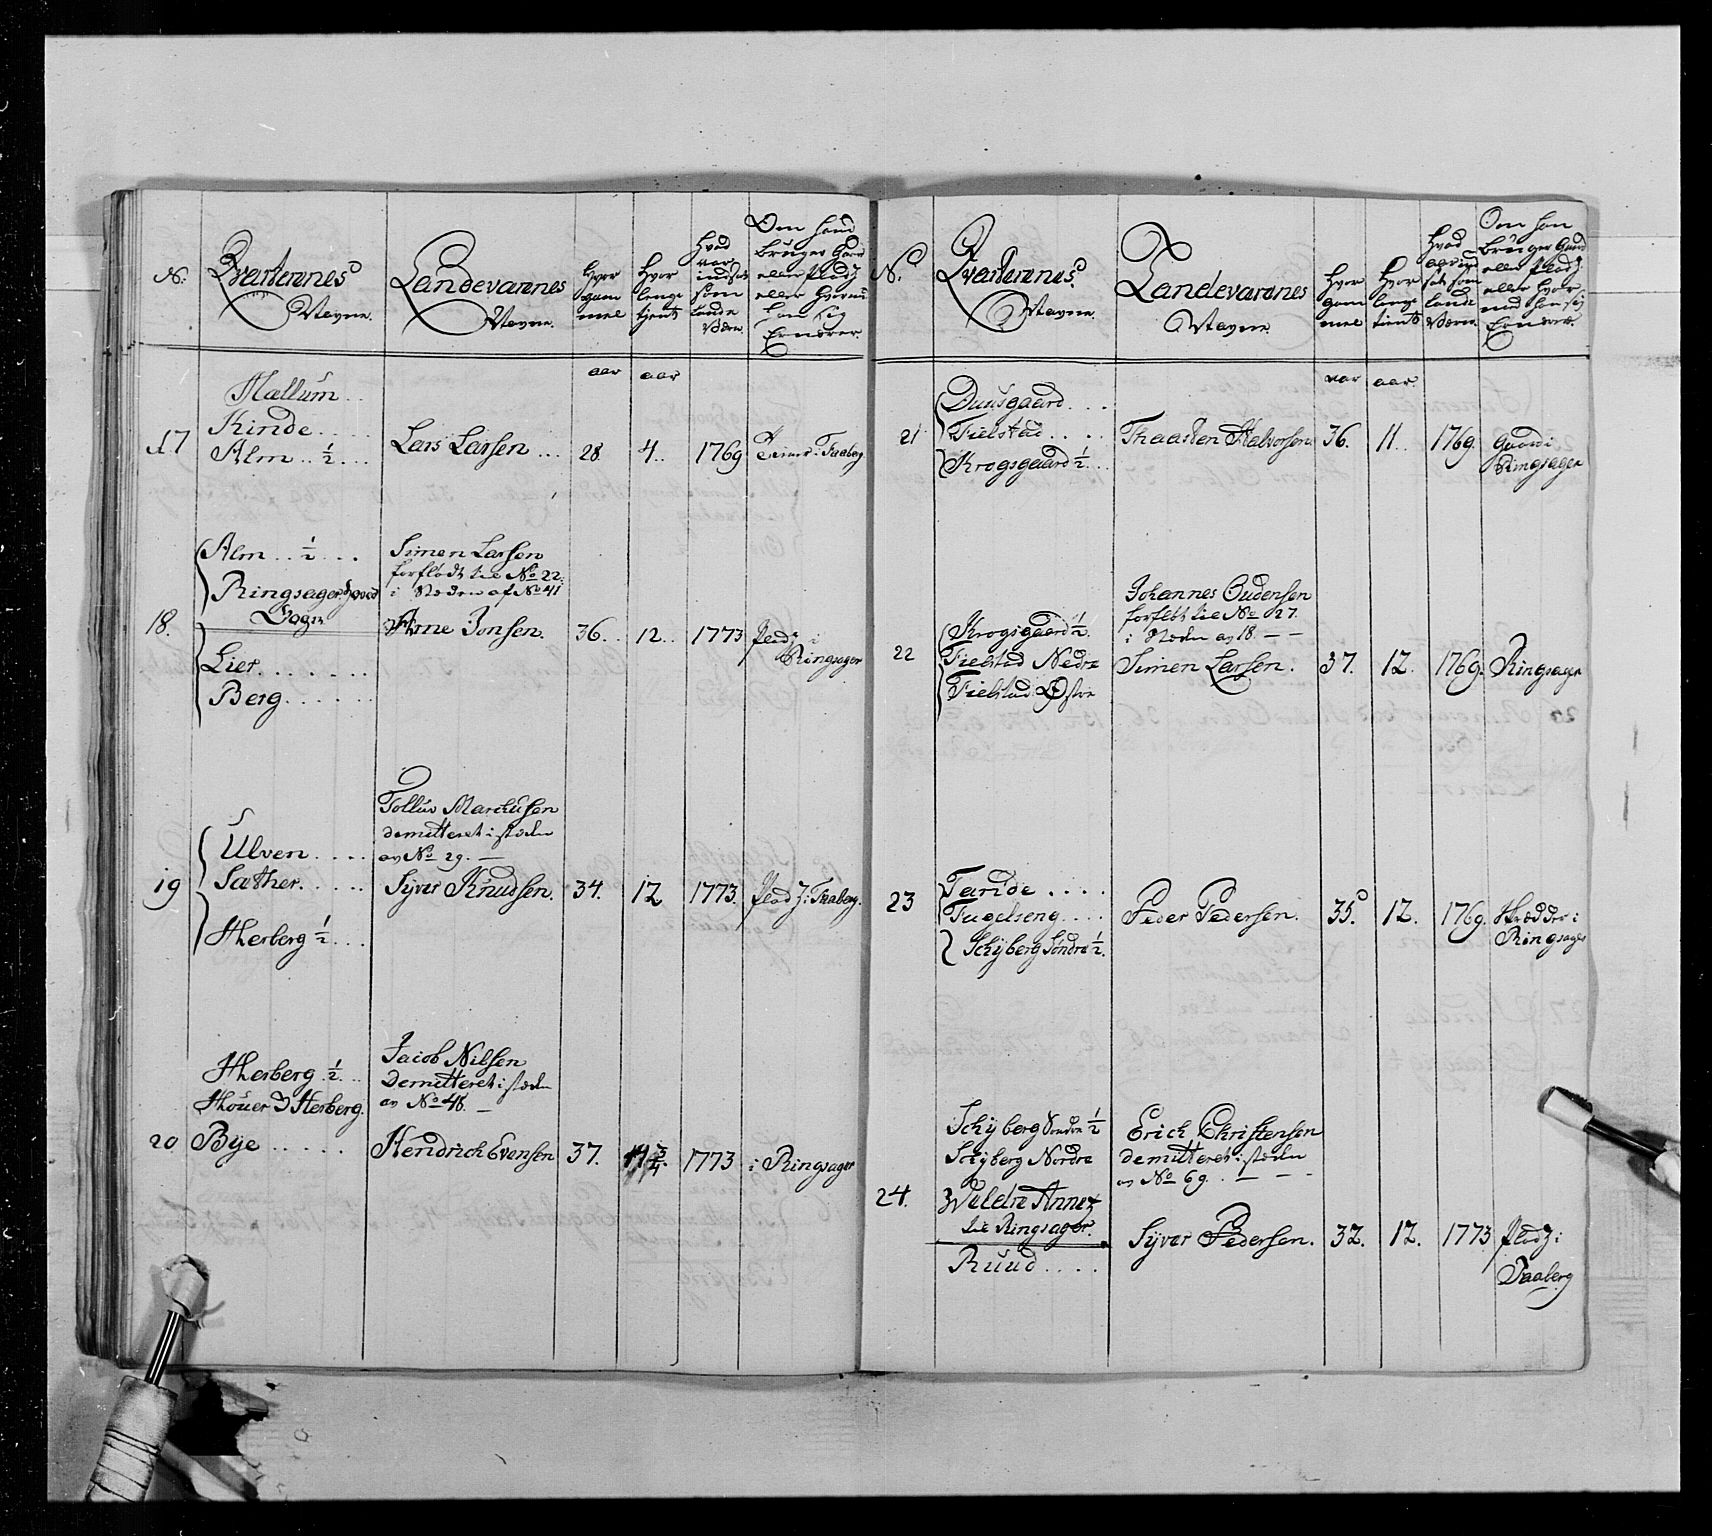 No.
Qvarterernes
Navne.
Landevarenes
Navne.
Hvor
gam
mel
Hvor
lenge
tient
Hvad
aar
indsat
som
Lande
Værn
Om hand
bruger Gaard
eller Pladz
eller Hvormed
han sig
Ernærer.
aar
aar
17
Mællum
Kinde
Alm .. ½ ...
Lars Larsen ...
28
4..
1769
i Faaberg
18.
Alm .. ½ ...
Ringsager
Lier
Berg
Simen Larsen
forflødt til No 22.
i Steden af No 41
Arne Jonsen.
36.
12..
1773
Pladz i
Ringsager
19
Ulven ....
Sæther.....
Herberg ½ ...
Tollus Marcusen
demitteret i stæden
av No 29. —
Syver Knudsen.
34.
12
1773.
Pladz i Faaberg.
20
Herberg ½ ..
Houer I Herberg.
Bye .....
Jacob Nilsen
Demitteret i stæden
av No 48. —
Hendrich Evensen
37.
¾.
1773
i Ringsager
N.
Qvarterernes
Navne.
Landevarenes
Navne.
Hvor
gam
mel
Hvor
lenge
tient
Hvad
aar ind
sat som
Lande
Værn
Om han
bruger Gaard
eller Pladz
eller Hvor
med han sig
Ernærer.
aar
aar
21
Duusgaard ...
Fielstad ....
Krogsgaard ½ ...
Thaasten Halvorsen
36.
11..
1769.
Gaard i
Ringsager
22
Krogsgaard ½.
Fielstad Nedre
Fielstad Østre
Johannes Gudensen
forflöt til No 27.
i Steden av 18. — —
Simen Larsen.
37.
12.
1769.
Ringsager
23
Taride ....
Fugelseng ....
Schyberg Søndre ½.
Peder Pedersen.
35.
12.
1769.
Skrædder i
Ringsager
24.
Schyberg Søndre ½
Schyberg Nordre
Weldre Annex
til Ringsager.
Ruud ....
Erich Christensen
demitteret i stæden
av No 69. — —
Syver Pedersen.
32.
12.
1773
Pladz i
Faaberg